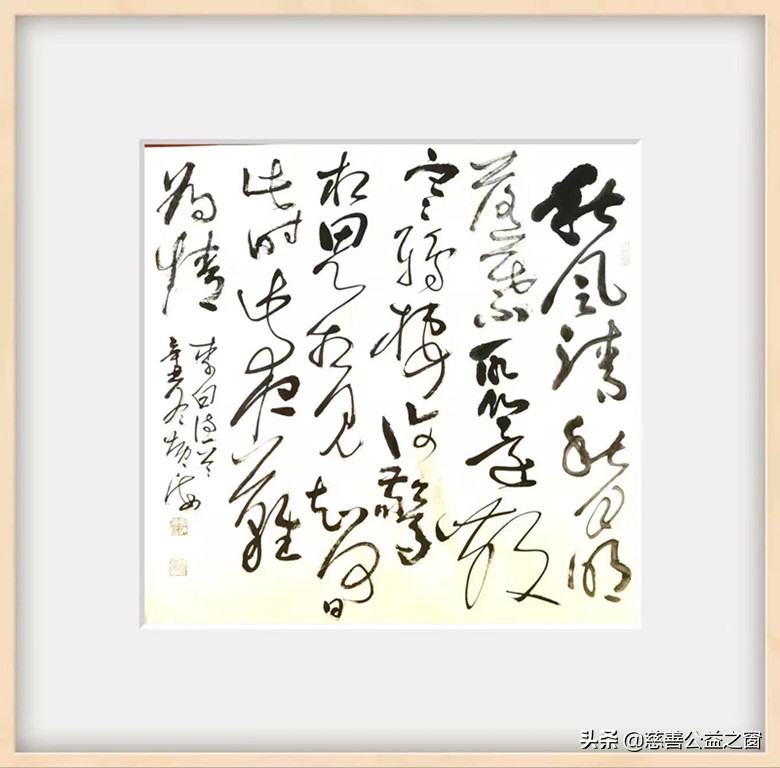 秋风清秋月明
落葉聚還散
寒鴉栖復驚
相思相見知何日
此时此夜難
为情
李白诗
辛丑冬
头条 @慈善公益之窗